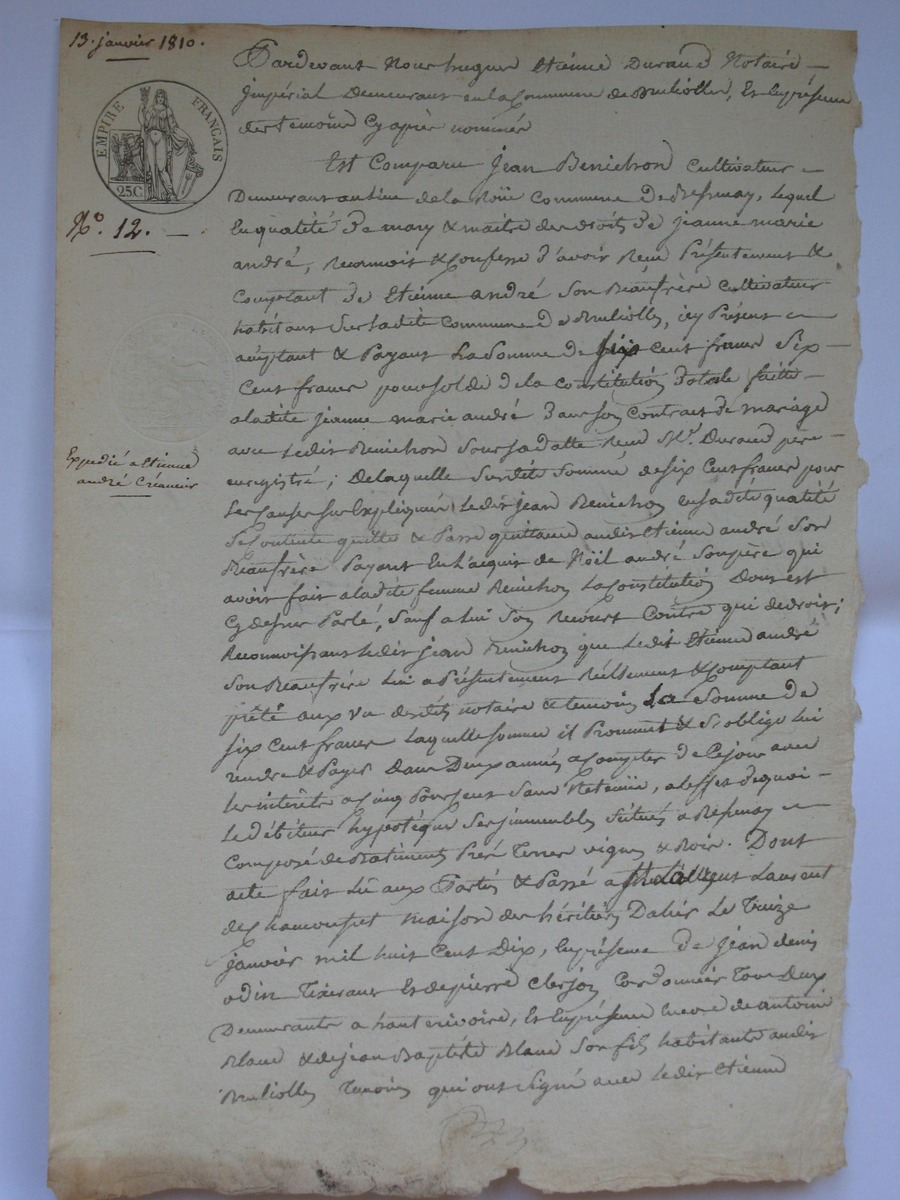 13. janvier 1810.
EMPIRE FRANÇAIS
25C
N.o 12.
Expedié a Etienne
andré Créancier
Pardevant Nous hugues Etienne Durand Notaire
impérial Demeurant en la Commune de Brulliolles, Et En présence
des temoins Cy après nommés
Est Comparu Jean Benichon Cultivateur
Demeurant au lieu de la Noüe Commune de Bessenay, lequel
En qualité de mary & maitre des droits de jeanne marie
andré, Reconnoit & Confesse d'avoir Reçu Présentement &
Comptant de Etienne andré Son Beaufrère Cultivateur
habitant Sur ladite Commune de Brulliolles, icy Présent
acceptant & Payant La Somme de Six cent francs Six
Cent francs pour solde de la constitution dotale faitte
a ladite jeanne marie andré dans son Contrat de mariage
avec ledit Benichon Sous sa datte Reçu Me. Durand père
enregistré; De laquelle Susdite Somme de six Cent francs pour
Les causes sus Expliquées ledit jean Benichon en sadite qualité
Se Contente quitte & Passe quittance audit Etienne andré Son
Beaufrère Payant En L'acquit de Noël andré Son père qui
avoit fait a ladite femme Benichon La Constitution Dont est
Cy dessus Parlé, Sauf a Lui Son Recourt Contre qui de droit;
Reconnoissant ledit jean Benichon que ledit Etienne andré
Son Beaufrère Lui a Présentement Réellement & Comptant
prêté aux vu desdits notaire & temoins La Somme de
six Cent francs Laquelle somme il Promet & S'oblige Lui
rendre & Payer Dans Deux années a Compter de Ce jour avec
les intérêts a Cinq Pour Cent Sans Retenüe, a l'effet de quoi
Le débiteur hypotéque Ses immeubles situés a Bessenay
Composé de Batiments Pré Terres vignes & Bois. Dont
acte fait Lû aux Parties & Passé a St. Laurent
de Chamousset maison des héritiers Dalier Le Treize
janvier mil huit Cent Dix, En présence de jean denis
odin Tixerant Et de pierre Clerjon Cordonnier Tous Deux
Demeurants a hauterivoire, Et En présence Encore de antoine
Blanc & de jean Baptiste Blanc Son fils habitants audit
Brulliolles Temoins qui ont signé avec Ledit Etienne